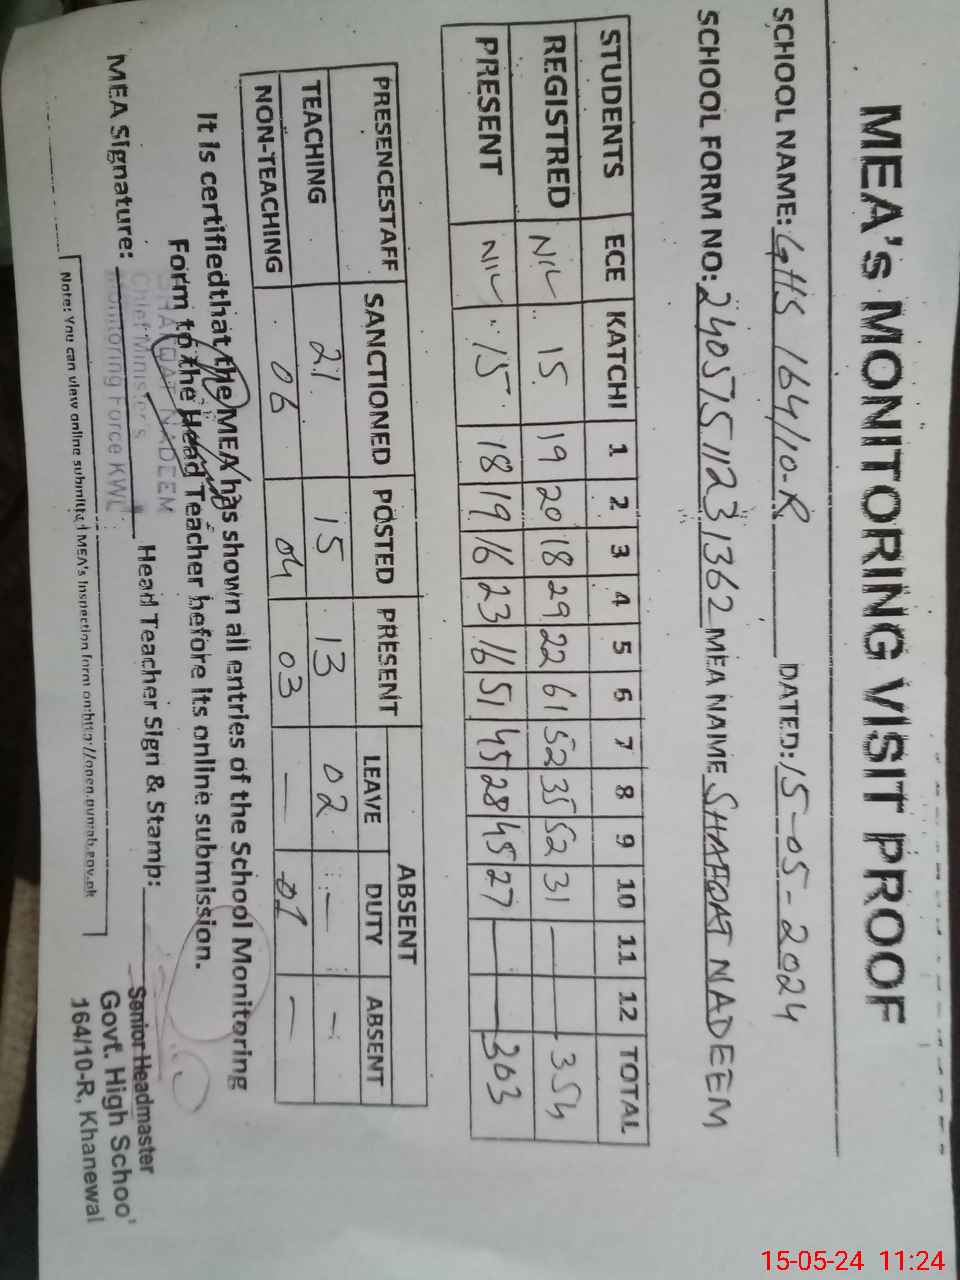 MEA's MONITORING VISIT PROOF
SCHOOL NAME: GHS 164/10-R DATED: 15-05-2024
SCHOOL FORM NO: 24057511231362 MEA NAME SHAFQAT NADEEM
STUDENTS ECE KATCHI 1 2 3 4 5 6 7 8 9 10 11 12 TOTAL
REGISTRED NIL 15 19 20 18 29 22 61 52 35 52 31 — — 354
PRESENT NIL 15 18 19 16 23 16 51 45 28 45 27 — — 303
PRESENCESTAFF SANCTIONED POSTED PRESENT ABSENT
LEAVE DUTY ABSENT
TEACHING 21 15 13 02 — —
NON-TEACHING 06 04 03 — 01 —
It is certifiedthat the MEA has shown all entries of the School Monitoring
Form to the Head Teacher before its online submission.
SHAFQAT NADEEM
Chief Minister's
Monitoring Force KWL
MEA Signature: Head Teacher Sign & Stamp:
Senior Headmaster
Govt. High Schoo'
164/10-R, Khanewal
Note: You can view online submitted MEA's Inspection form on:http://open.punjab.gov.pk
15-05-24 11:24